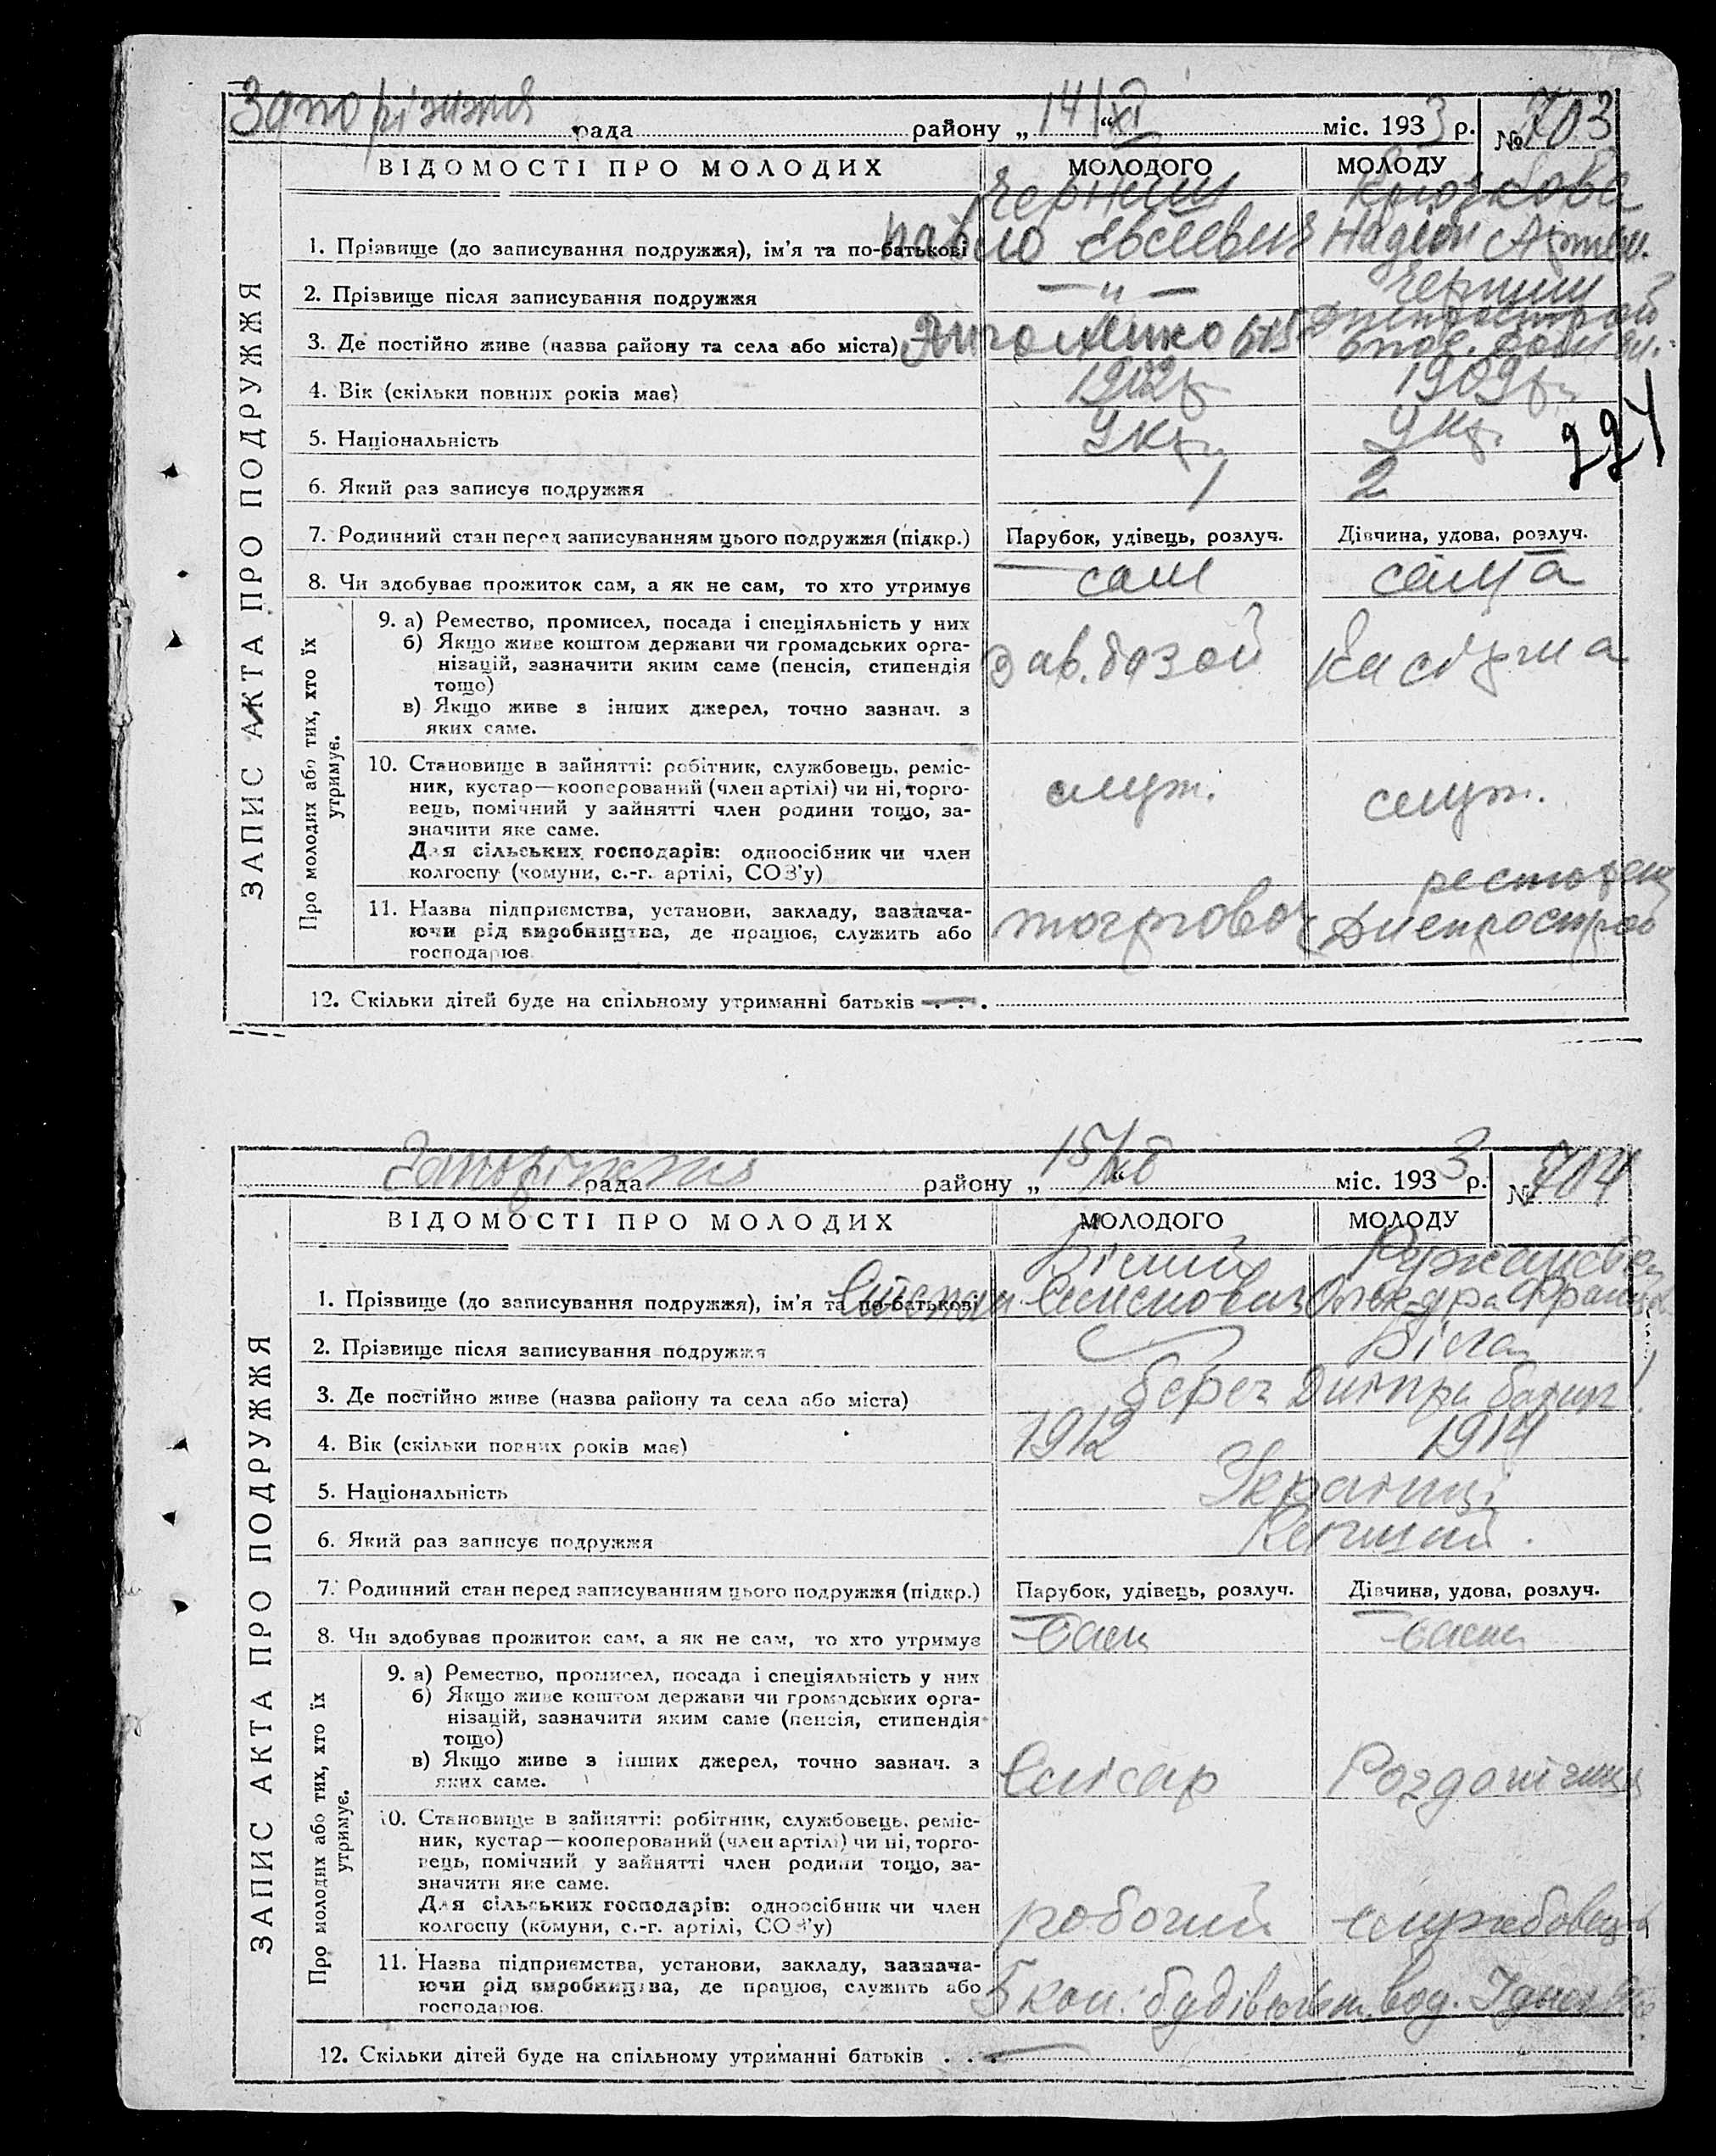 Запоріжжя рада району „14/XI“ міс. 1933 р. № 703
ЗАПИС АКТА ПРО ПОДРУЖЖЯ
ВІДОМОСТІ ПРО МОЛОДИХ МОЛОДОГО МОЛОДУ
Черниш Крючкова
1. Прізвище (до записування подружжя), ім'я та по-батькові Павло Євсеевич Надія Артем.
2. Прізвище після записування подружжя — „ — Черниш
Днепрострой
3. Де постійно живе (назва району та села або міста)
4. Вік (скільки повних років має) 1902 р 1909 р.
5. Національність Укр. Укр.
6. Який раз записує подружжя 1 2
221
7. Родинний стан перед записуванням цього подружжя (підкр.) Парубок, удівець, розлуч. Дівчина, удова, розлуч.
8. Чи здобуває прожиток сам, а як не сам, то хто утримує сам сама
Про молодих або тих, хто їх утримує.
9. а) Ремество, промисел, посада і спеціяльність у них
б) Якщо живе коштом держави чи громадських орга-
нізацій, зазначити яким саме (пенсія, стипендія
тощо)
зав. базой касірша
в) Якщо живе з інших джерел, точно зазнач. з
яких саме.
10. Становище в зайнятті: робітник, службовець, реміс-
ник, кустар—кооперований (член артілі) чи ні, торго-
вець, помічний у зайнятті член родини тощо, за-
значити яке саме.
служ. служ.
Для сільських господарів: одноосібник чи член
колгоспу (комуни, с.-г. артілі, СОЗ'у)
11. Назва підприємства, установи, закладу, зазнача-
ючи рід виробництва, де працює, служить або
господарює.
Днепрострой
12. Скільки дітей буде на спільному утриманні батьків — . . .
Запоріжжя рада району „15/XI“ міс. 1933 р. № 704
ЗАПИС АКТА ПРО ПОДРУЖЖЯ
ВІДОМОСТІ ПРО МОЛОДИХ МОЛОДОГО МОЛОДУ
Білий
1. Прізвище (до записування подружжя), ім'я та по-батькові Степан Семенович
2. Прізвище після записування подружжя Біла
3. Де постійно живе (назва району та села або міста) берег Дніпра
4. Вік (скільки повних років має) 1912 1914
5. Національність Українці
6. Який раз записує подружжя Перший.
7. Родинний стан перед записуванням цього подружжя (підкр.) Парубок, удівець, розлуч. Дівчина, удова, розлуч.
8. Чи здобуває прожиток сам, а як не сам, то хто утримує сам сама
Про молодих або тих, хто їх утримує.
9. а) Ремество, промисел, посада і спеціяльність у них
б) Якщо живе коштом держави чи громадських орга-
нізацій, зазначити яким саме (пенсія, стипендія
тощо)
в) Якщо живе з інших джерел, точно зазнач. з
яких саме.
Слісар Роздатчиця
10. Становище в зайнятті: робітник, службовець, реміс-
ник, кустар—кооперований (член артілі) чи ні, торго-
вець, помічний у зайнятті член родини тощо, за-
значити яке саме.
Для сільських господарів: одноосібник чи член
колгоспу (комуни, с.-г. артілі, СОЗ'у)
робочий службовець
11. Назва підприємства, установи, закладу, зазнача-
ючи рід виробництва, де працює, служить або
господарює.
12. Скільки дітей буде на спільному утриманні батьків . . . —